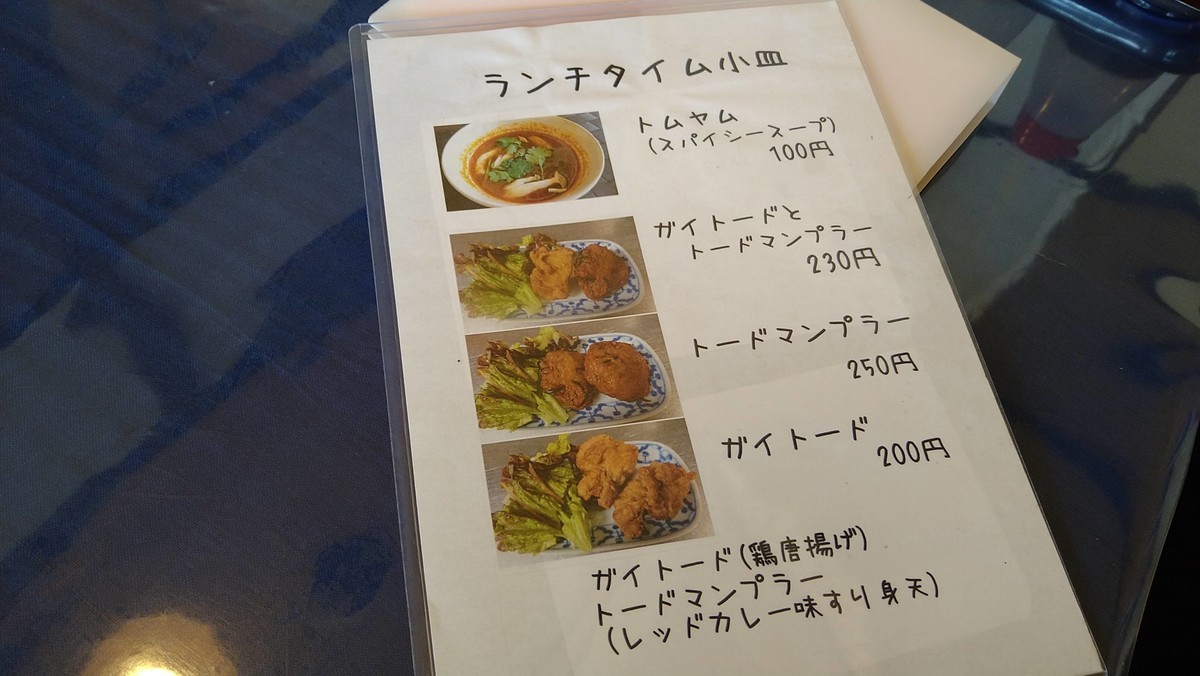 ランチタイム小皿
トムヤム
(スパイシースープ)
100円
ガイトードと
トードマンプラー
230円
トードマンプラー
250円
ガイトード
200円
ガイトード(鶏唐揚げ)
トードマンプラー
(レッドカレー味すり身天)